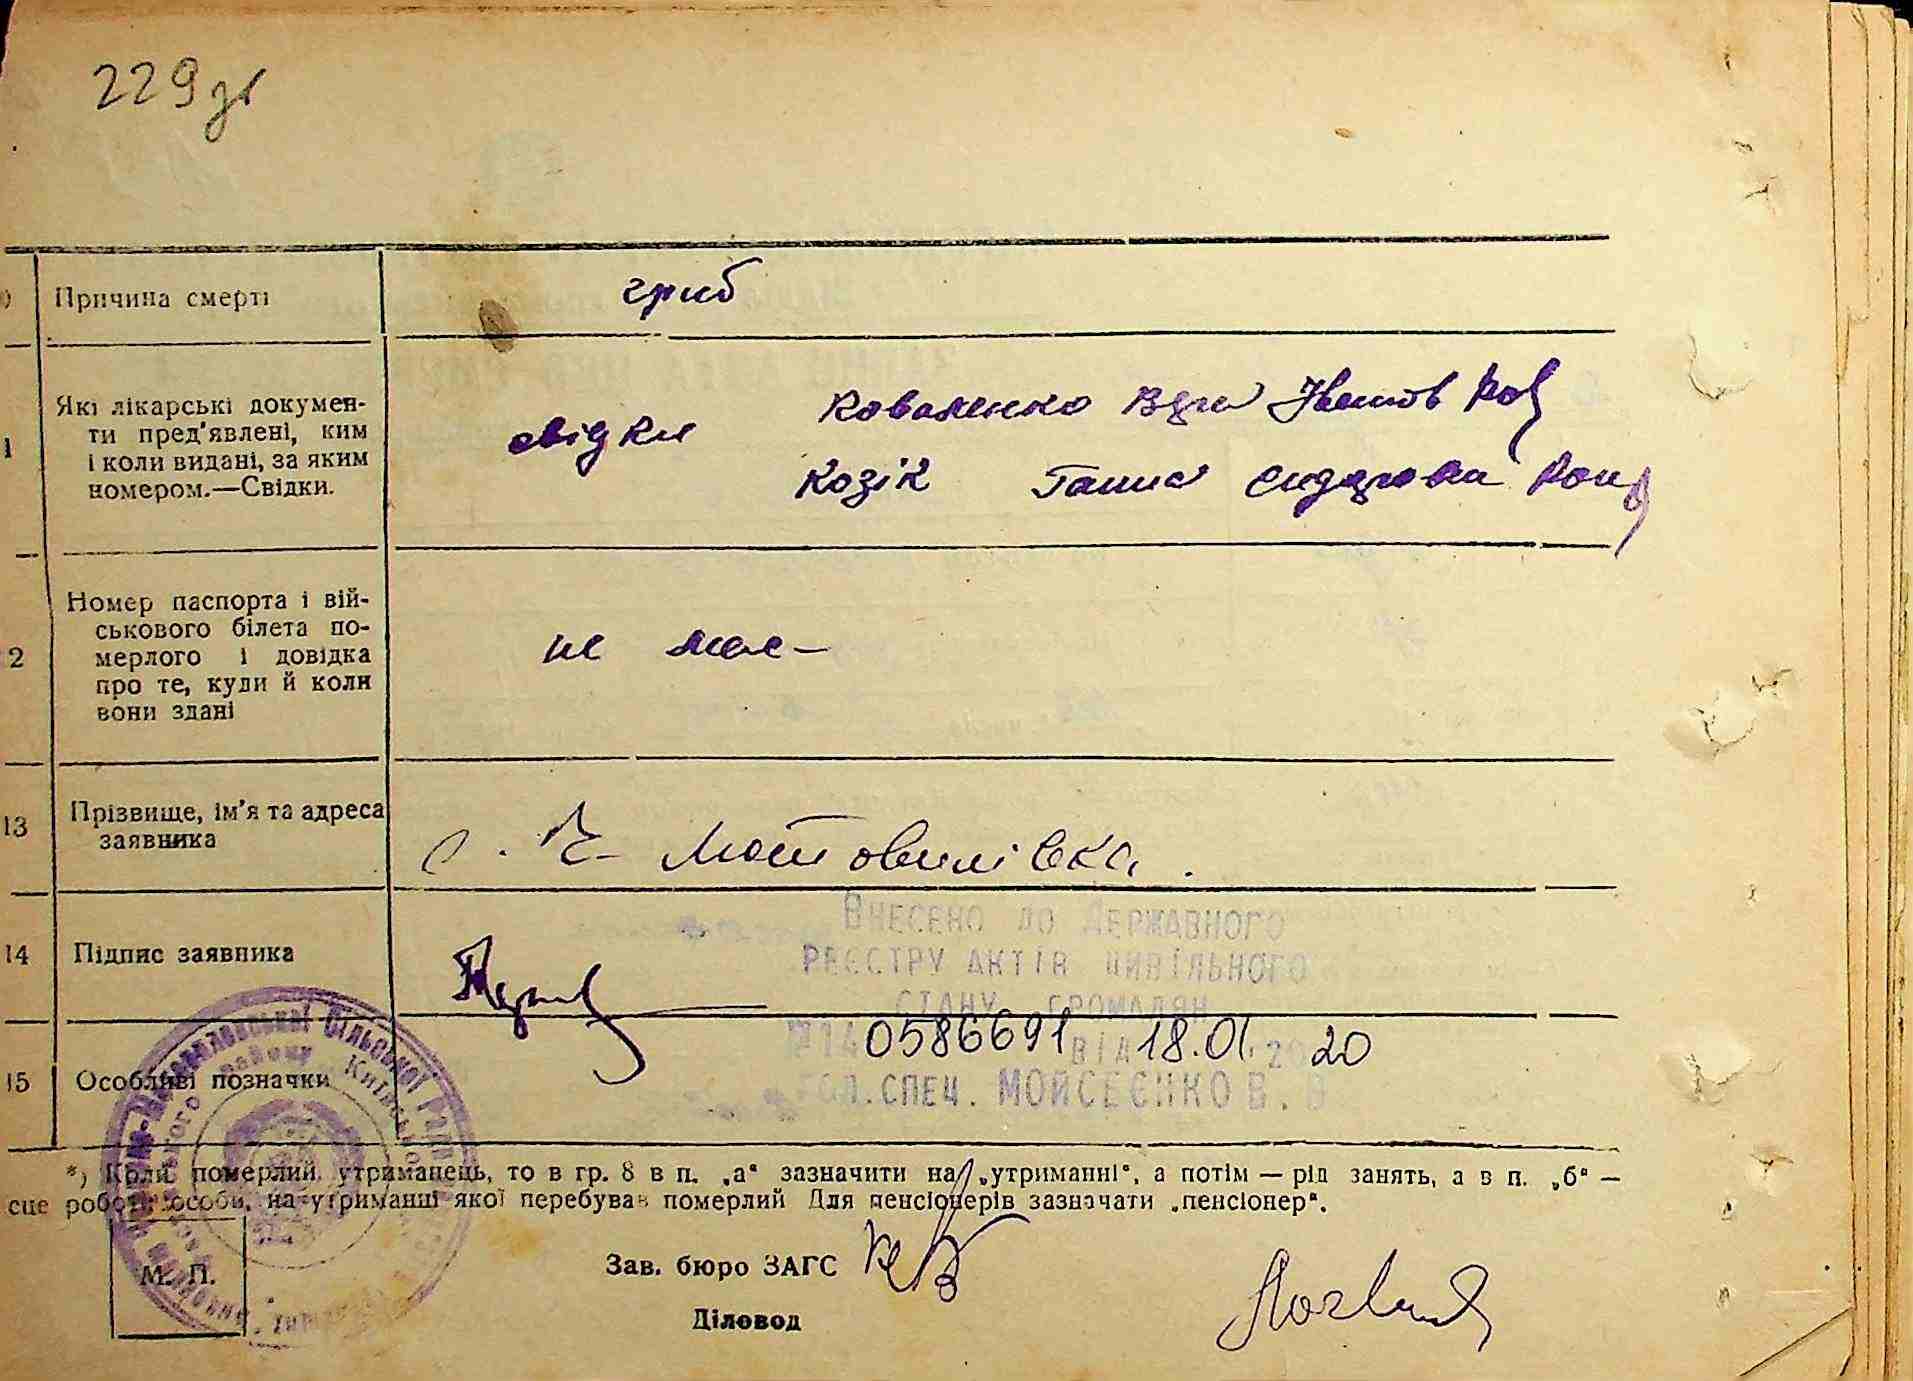 229 зв
Причина смерті
гриб
1 Які лікарські докумен-
ти пред'явлені, ким
і коли видані, за яким
номером.—Свідки.
свідки
Коваленко Іванов
Козік Ганна Сидоровна
2 Номер паспорта і вій-
ськового білета по-
мерлого і довідка
про те, куди й коли
вони здані
не має —
13 Прізвище, ім'я та адреса
заявника
с. В- Мотовилівка.
14 Підпис заявника
Внесено до Державного
реєстру актів цивільного
стану громадян
0586691 від 18.01. 2020
гол.спец. Мойсеєнко В. В
15 Особливі позначки
*) Коли померлий утриманець, то в гр. 8 в п. „а“ зазначити на „утриманні“, а потім — рід занять, а в п. „б“ —
сце роботи особи, на утриманні якої перебував померлий Для пенсіонерів зазначати „пенсіонер“.
М. П.
Зав. бюро ЗАГС
Діловод